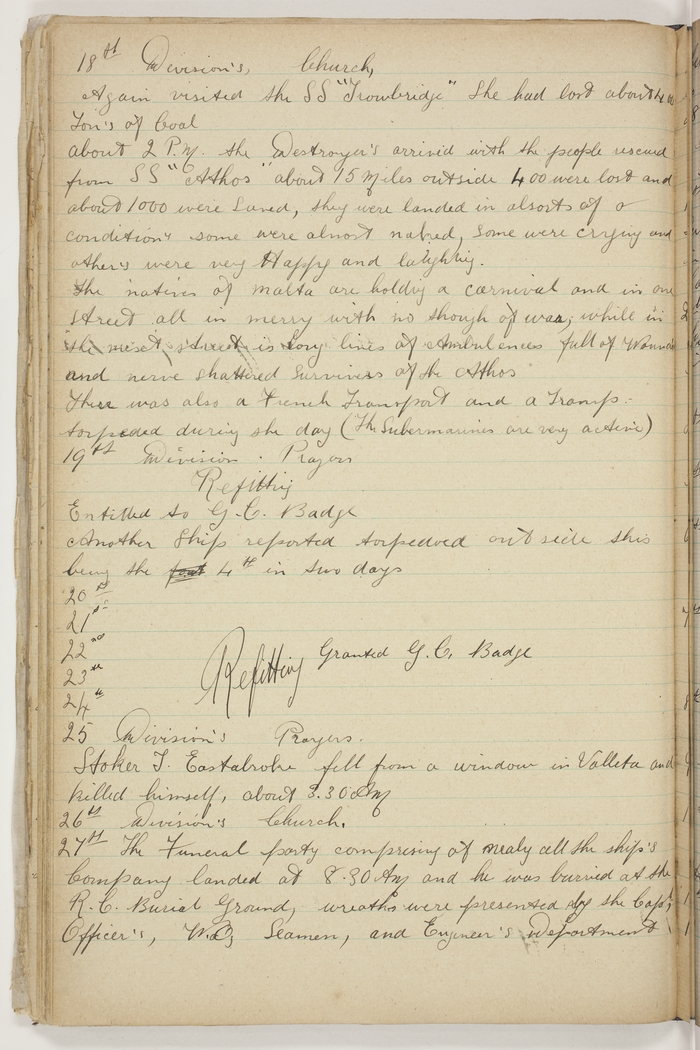 18th Division's, Church,
Again visited the SS "Trowbridge" She had lost about 400
Ton's of Coal
about 2 P.M. the Destroyer's arrived with the people rescued
from SS "Athos" about 15 Miles outside 400 were lost and
about 1000 were Saved, they were landed in alsorts of a
condition's some were almost naked, some were crying and
other's were very Happy and laughing.
The natives of malta are holdig a carnival and in one
street all in merry with no though of war, while in
the street is long lines of Ambulences full of Wounded
and nerve shattered Surviver's of the Athos
There was also a French Transport and a Tramp
torpeded during the day (The Submarines are very active)
19th Division. Prayers
Refitting
Entitled to G.C. Badge
Another Ship reported torpedoed out side this
being the 4th in two days
20th
21st
22nd
23rd
24th
Refitting Granted G.C. Badge
25 Division's Prayers.
Stoker T. fell from a window in Valleta and
killed himself, about 3.30 AM
26th Division's Church.
27th The Funeral party comprising of nealy all the ship's
Company landed at 8.30 Am and he was burried at the
R.C. Burial Ground, wreaths were presented by the Capt,
Officer's, W.O, Seamen, and Engineer's Department